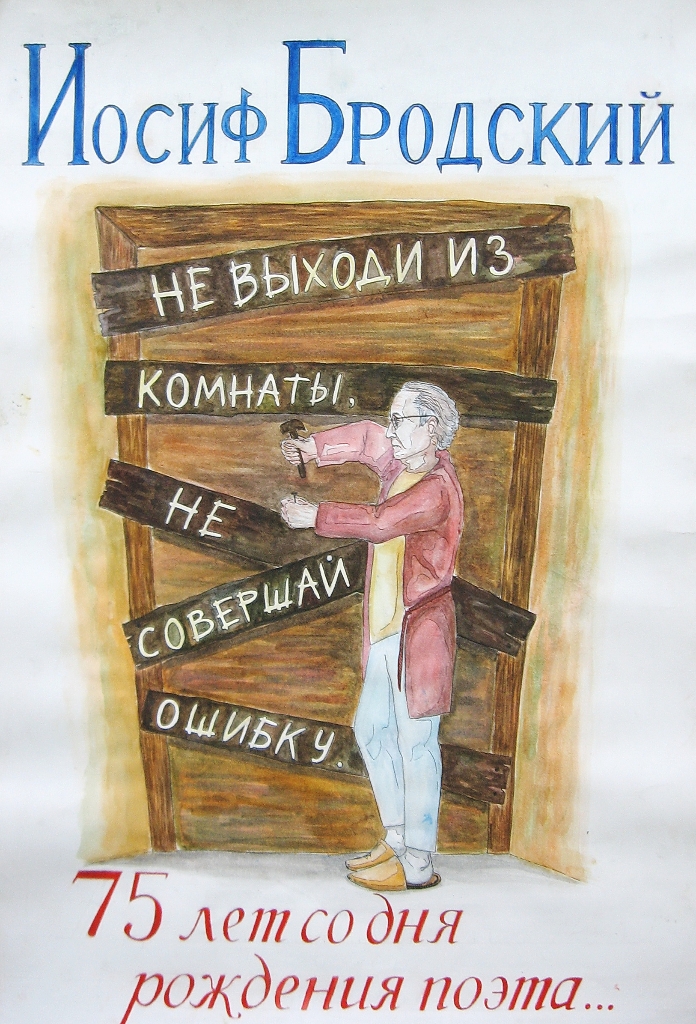 Иосиф Бродский
НЕ ВЫХОДИ ИЗ
КОМНАТЫ,
НЕ
СОВЕРШАЙ
ОШИБКУ.
75 лет со дня
рождения поэта...